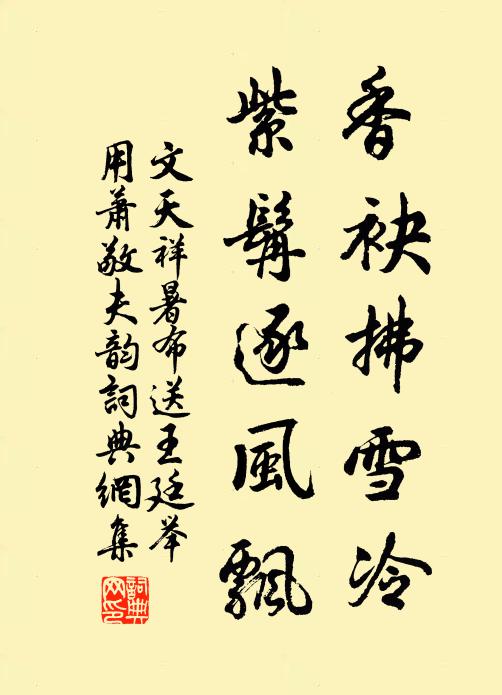 香袂拂雪冷
紫髯逐風飄
文天祥暑布送王廷举
用蕭敬夫韵詞典網集